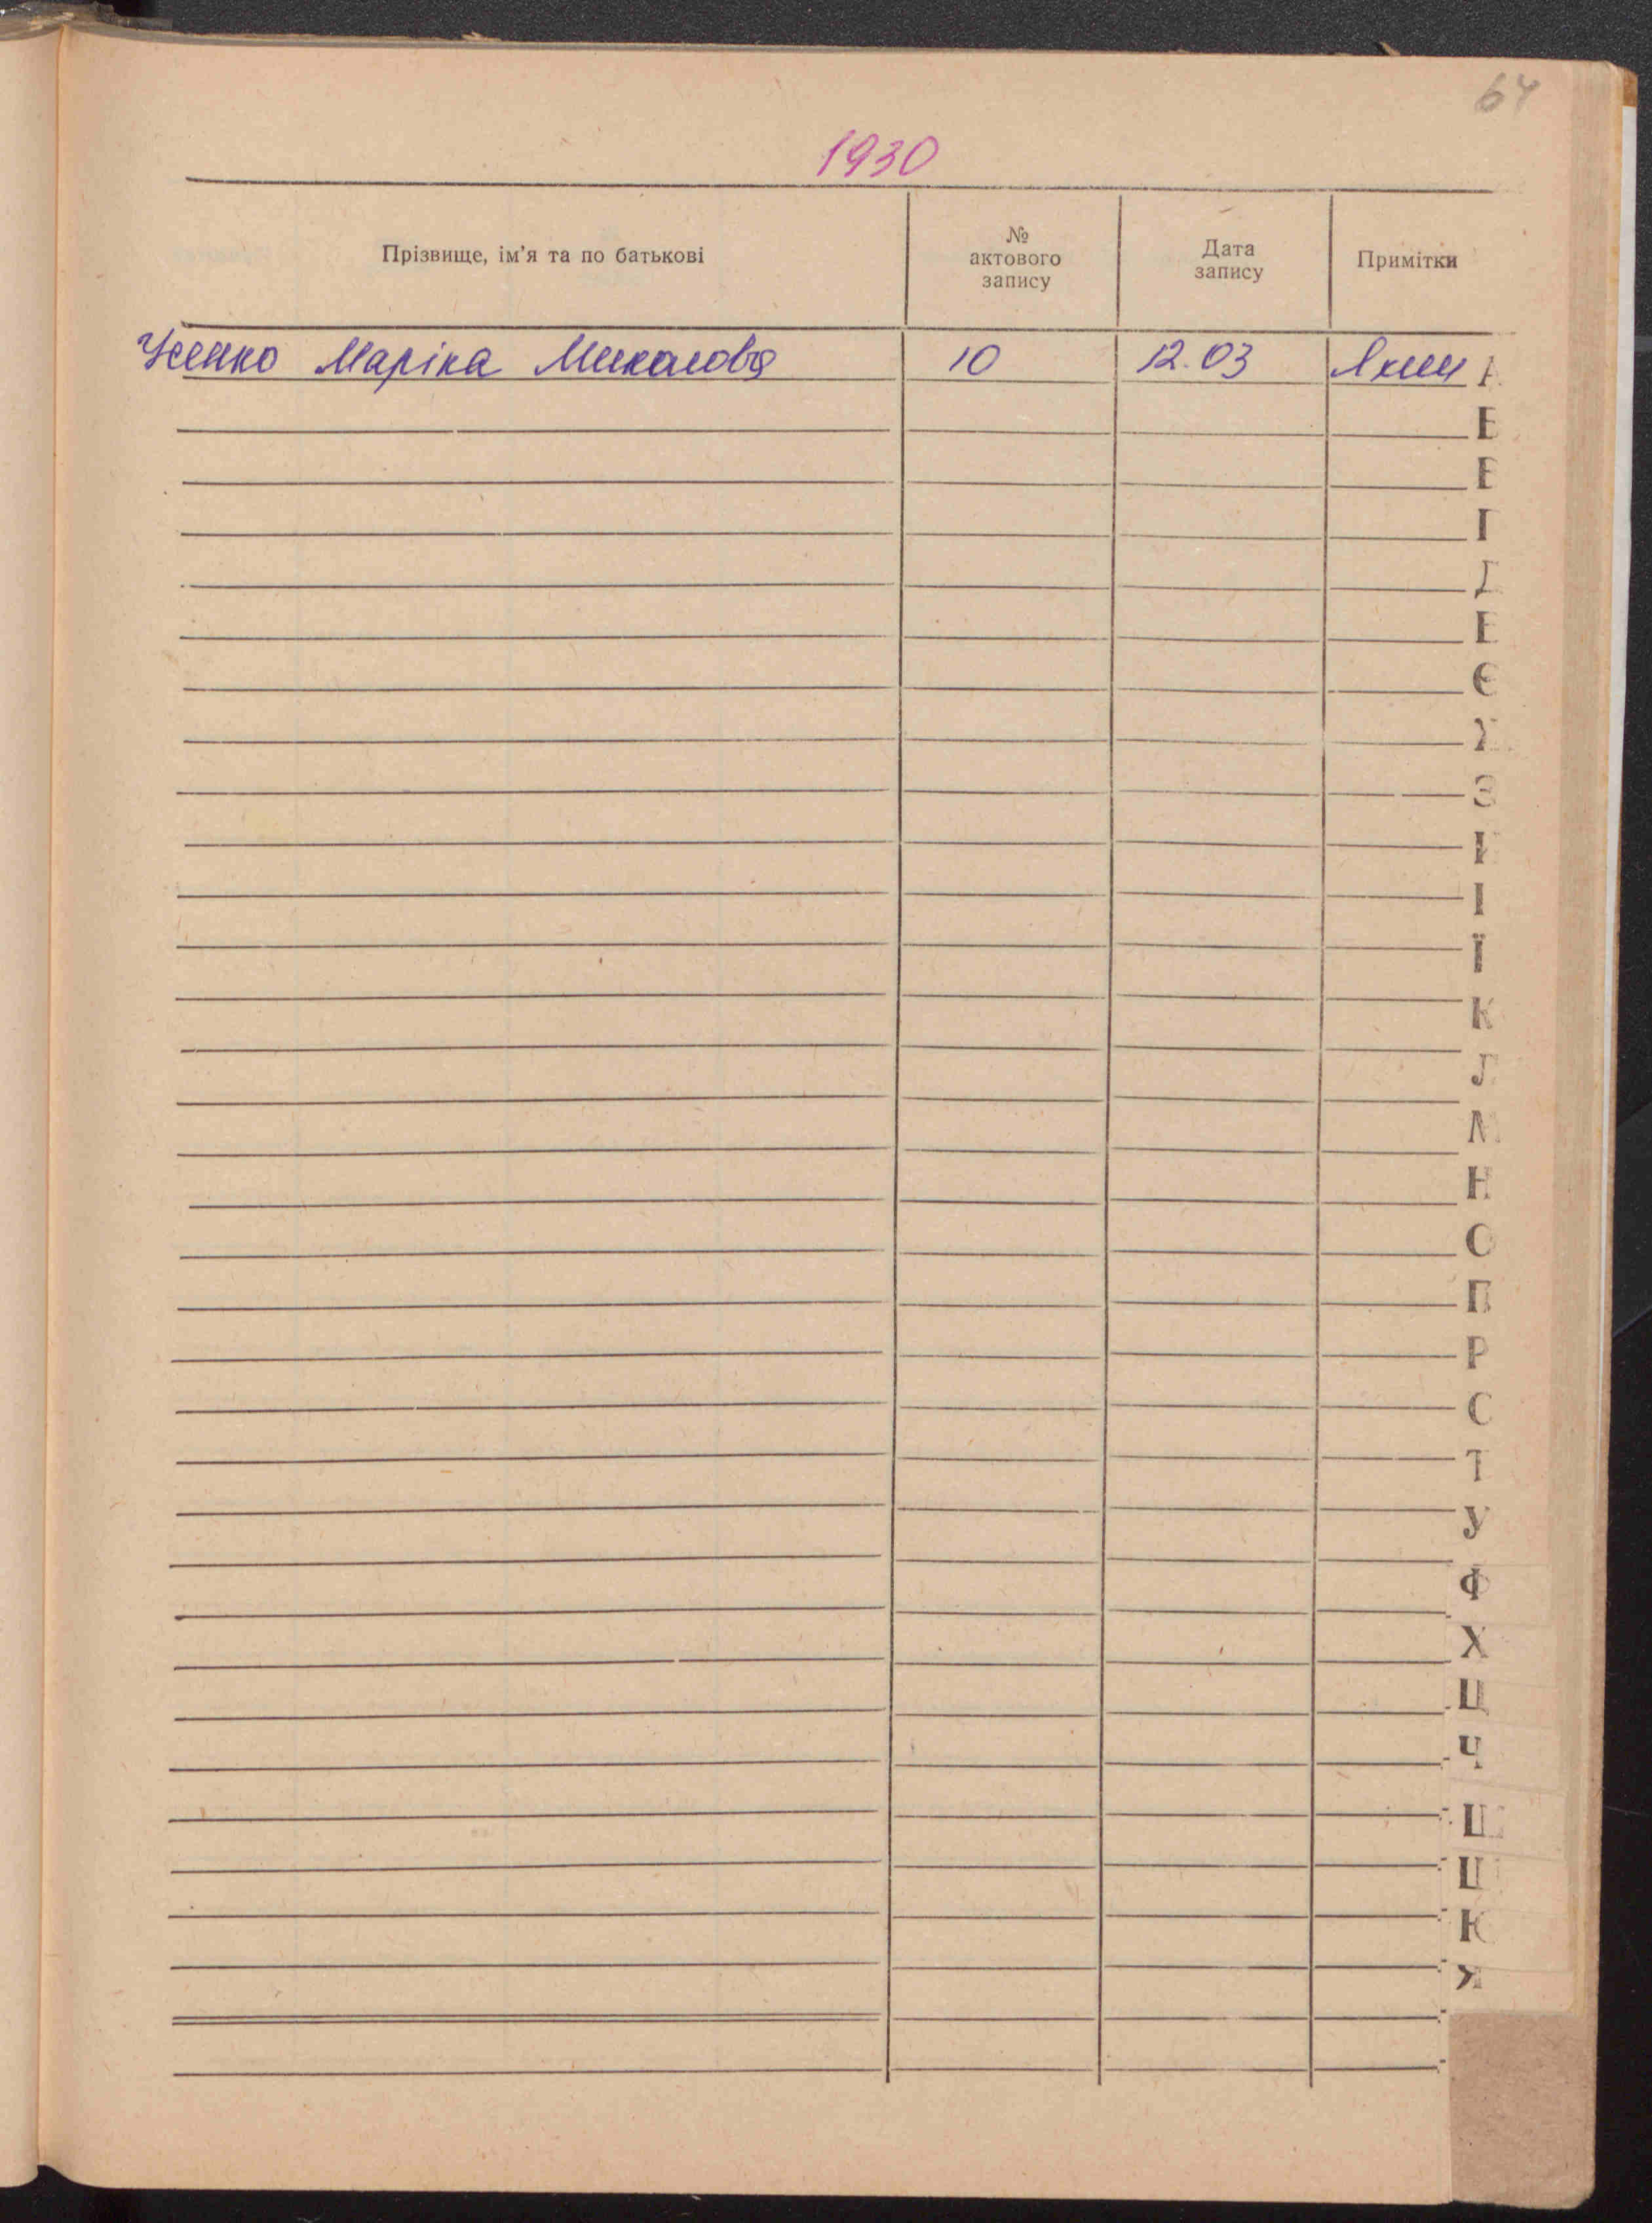 64
1930
Прізвище, ім'я та по батькові
№ актового запису
Дата запису
Примітки
Усенко Маріка Миколовна 10 12.03
Б
В
Г
Д
Е
Є
Ж
З
И
І
Ї
К
Л
М
Н
О
П
Р
С
Т
У
Ф
Х
Ц
Ч
Ш
Щ
Ю
Я